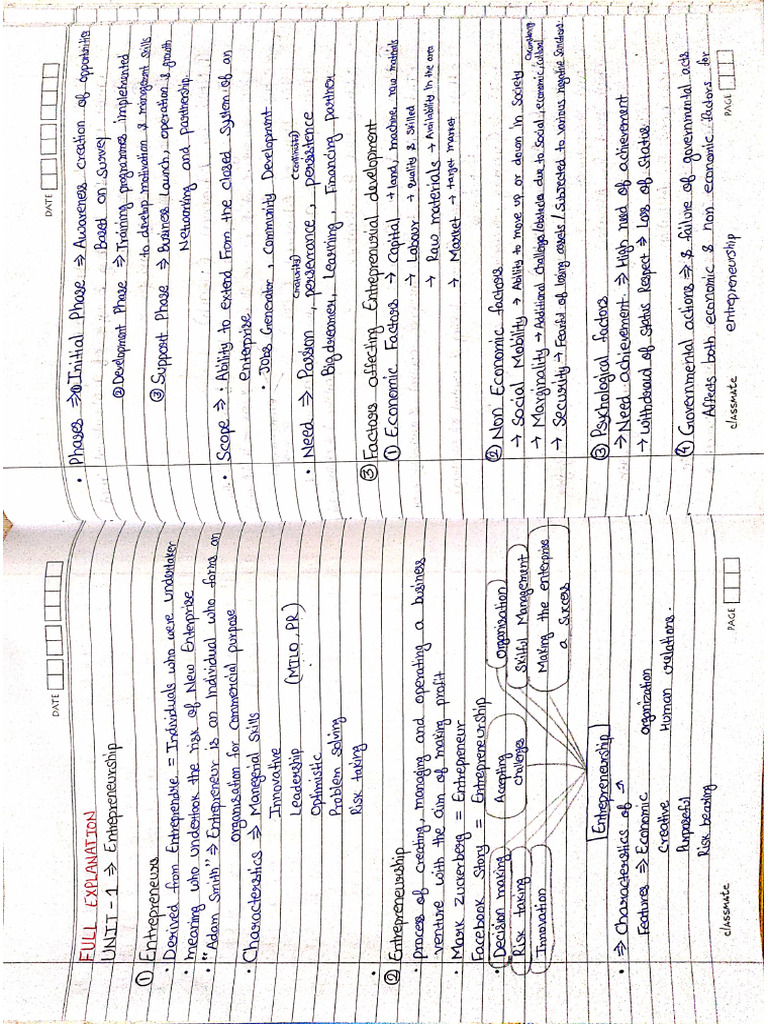 DATE
FULL EXPLANATION
UNIT-1 ⇒ Entrepreneurship
① Entrepreneurs
• Derived from Entreprendre = Individuals who were undertaker
• meaning who undertook the risk of New Enterprise
• "Adam Smith" ⇒ Entrepreneur is an Individual who forms an
organisation for commercial purpose
• Characteristics ⇒ Managerial Skills
Innovative
Leadership (MILO, PR)
Optimistic
Problem Solving
Risk taking
② Entrepreneurship
• process of creating, managing and operating a business
venture with the aim of making profit
• Mark Zuckerberg = Entrepreneur
Facebook Story = Entrepreneurship
• Decision making Accepting challenges Organisation
Risk taking Skilful Management
Innovation Making the enterprise a success
Entrepreneurship
• ⇒ Characteristics of →
Features ⇒ Economic organization
Creative Human relations.
Purposeful
Risk bearing
classmate
PAGE
DATE
• Phases ⇒ ① Initial Phase ⇒ Awareness creation of opportunities
Based on Survey
② Development Phase ⇒ Training programmes implemented
to develop motivation & management skills
③ Support Phase ⇒ Business Launch, operation & growth
Networking and partnership
• Scope ⇒ • Ability to extend From the closed System of an
enterprise
• Jobs Generator, Community Development
• Need ⇒ Passion, perseverance, persistence
Big dreamer, Learning, Financing partner
③ Factors affecting Entreprenesial development
① Economic Factors → Capital → land, machine, raw materials
→ Labour → quality & skilled
→ Raw materials → Availability in the area
→ Market → target market
② Non Economic factors
→ Social Mobility → Ability to move up or down in Society
→ Marginality → Additional challenge/obstacle due to Social, economic, cultural
→ Security → Fearful of losing assets / Subjected to various negative Sanctions
③ Psychological factors
→ Need achievement ⇒ High need of achievement
→ Withdrawl of Status Respect ⇒ Loss of Status
④ Governmental actions ⇒ & failure of governmental acts
Affects both economic & non economic factors for
entrepreneurship
classmate
PAGE